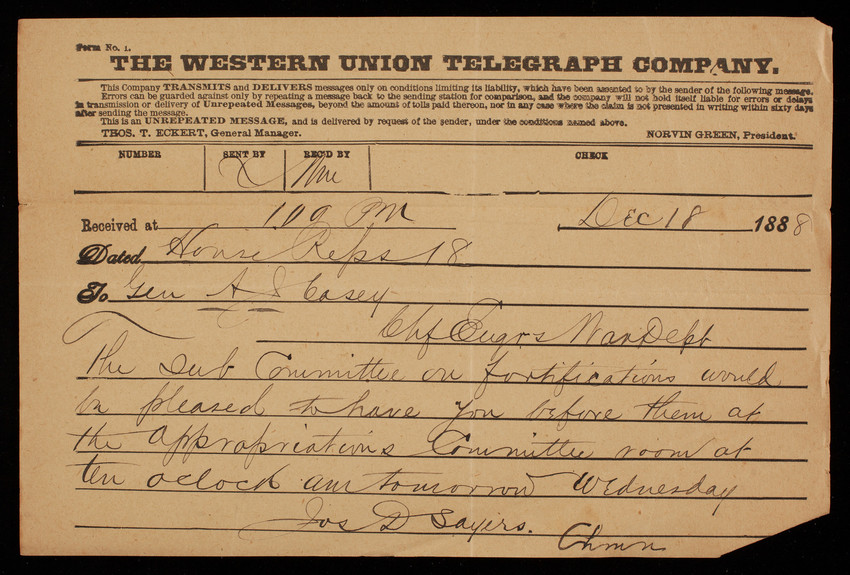 Form No. 1.
THE WESTERN UNION TELEGRAPH COMPANY.
This Company TRANSMITS and DELIVERS messages only on conditions limiting its liability, which have been assented to by the sender of the following message.
Errors can be guarded against only by repeating a message back to the sending station for comparison, and the company will not hold itself liable for errors or delays
in transmission or delivery of Unrepeated Messages, beyond the amount of tolls paid thereon, nor in any case where the claim is not presented in writing within sixty days
after sending the message.
This is an UNREPEATED MESSAGE, and is delivered by request of the sender, under the conditions named above.
THOS. T. ECKERT, General Manager. NORVIN GREEN, President.
NUMBER SENT BY REC'D BY CHECK
Received at 1.00 PM Dec 18 1888
Dated House Reps 18
To Gen Casey
Chf Engrs War Dept
The Sub Committee on fortifications would
be pleased to have you before them at
the appropriations Committee room at
ten oclock am tomorrow Wednesday
Jos D Sayers.
Chmn